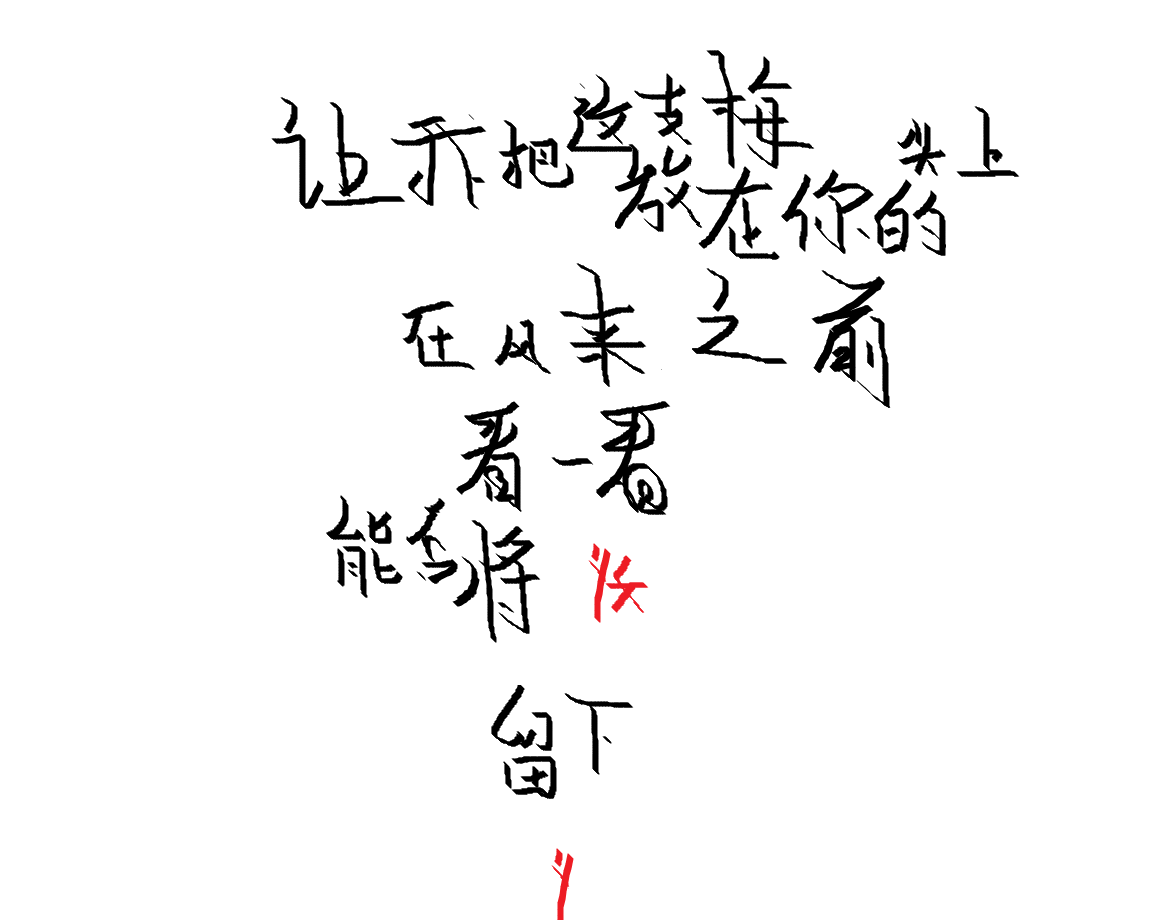 让我把这支梅放在你的头上
在风来之前
看一看
能否将你
留下